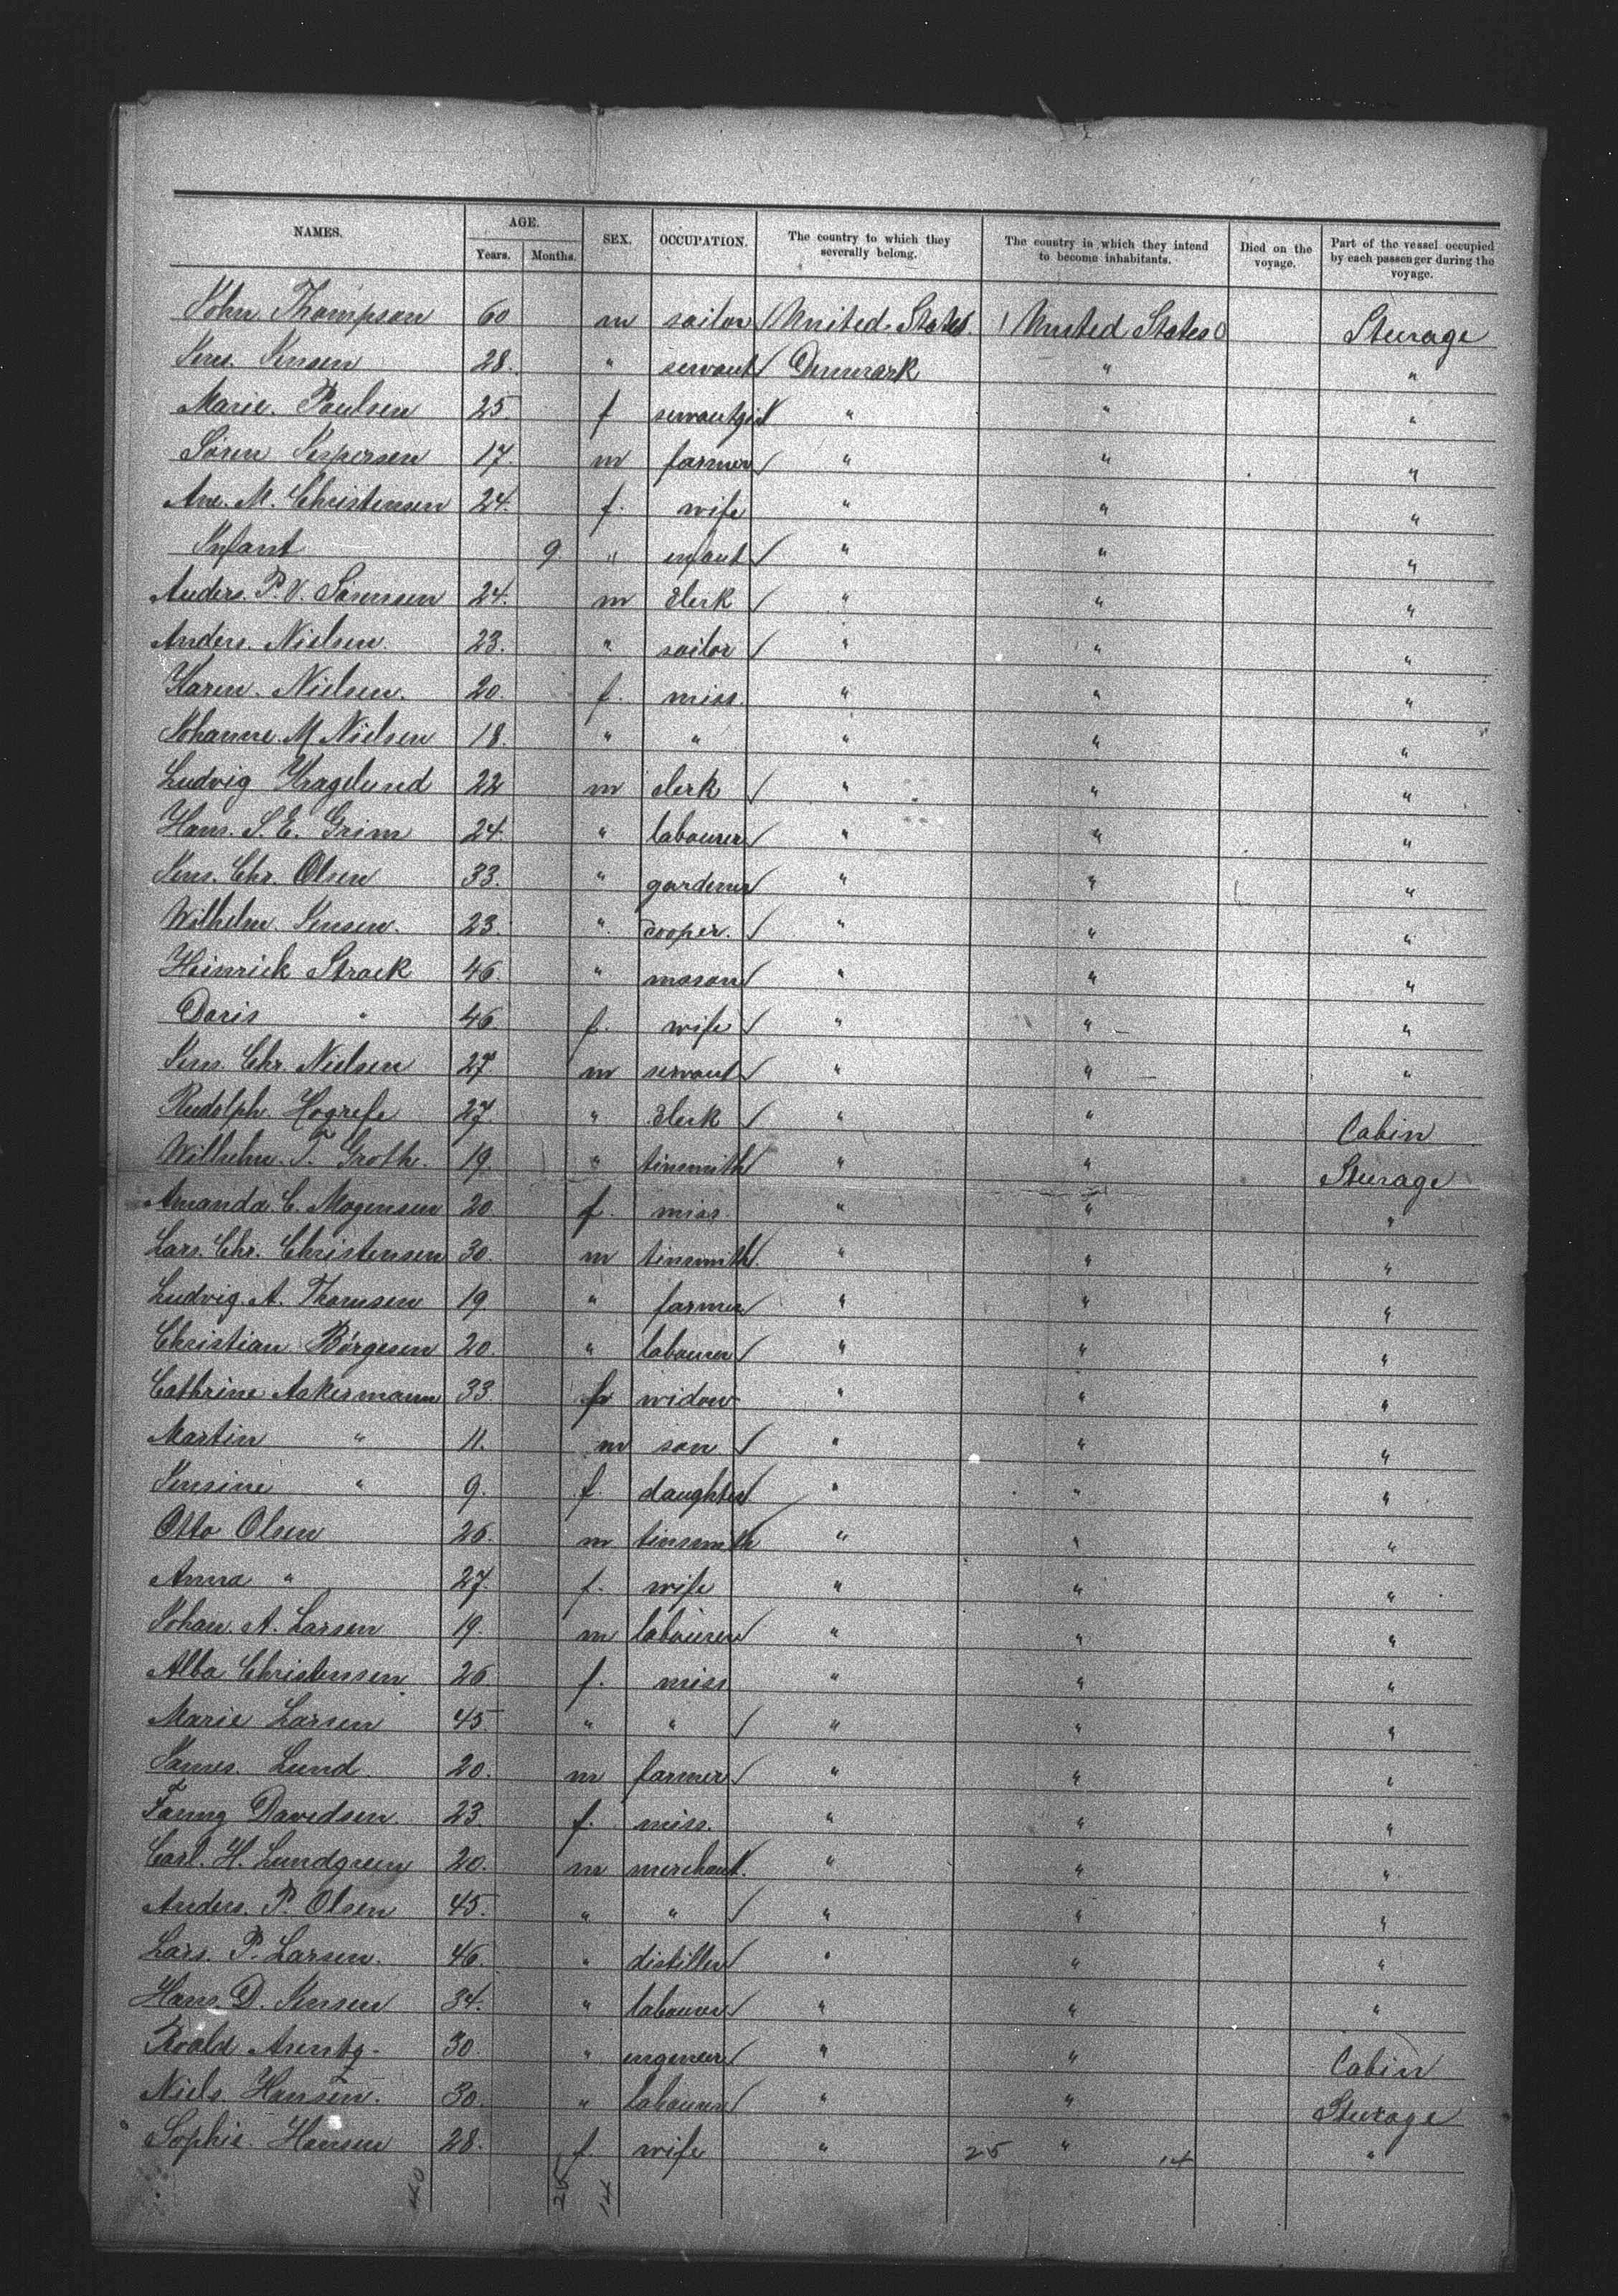 NAMES. AGE. SEX. OCCUPATION. The country to which they severally belong. The country in which they intend to become inhabitants. Died on the voyage. Part of the vessel occupied by each passenger during the voyage.
Years. Months.
John Thompson 60 m sailor United States United States Steurage
Jens. Jensen 28. " servant Denmark " "
Marie. Poulsen 25 f servantgirl " " "
Sören Jespersen 17. m farmer " " "
Ane. M. Christensen 24. f. wife " " "
Infant 9 " infant " " "
Anders. P. V. Sörensen 24. m Clerk " " "
Anders. Nielsen. 23. " sailor " " "
Karen. Nielsen. 20. f. miss. " " "
Johanne. M Nielsen 18. " " " " "
Ludvig Kragelund 22 m clerk " " "
Hans. S. E. Grim 24. " labourer " " "
Jens. Chr. Olsen 33. " gardener " " "
Wilhelm. Jensen. 23. " cooper. " " "
Heinrick Strack 46. " mason " " "
Doris " 46 f. wife " " "
Jens. Chr. Nielsen 27. m servant " " "
Rudolph. Hogrefe 27. " Clerk " " Cabin
Wilhelm. T. Groth. 19. " tinsmith " " Steurage
Amanda C. Mogensen 20. f. miss. " " "
Lars. Chr. Christensen 30. m tinsmith. " " "
Ludvig. A. Thomsen 19 " farmer " " "
Christian Börgesen 20. " labourer " " "
Cathrine Aakermann 33. f widow " " "
Martin " 11. m son " " "
Jensine " 9. f. daughter " " "
Otto Olsen 26. m tinsmith " " "
Anna " 27. f. wife " " "
Johan. A. Larsen 19. m labourer " " "
Alba Christensen 26. f. miss " " "
Marie Larsen 45. " " " " "
James. Lund. 20. m farmer " " "
Fanny Davidsen. 23. f. miss. " " "
Carl. H. Lundgreen 20. m merchant. " " "
Anders. P. Olsen 45. " " " " "
Lars. P. Larsen. 46. " distiller " " "
Hans. D. Jensen 34. " labourer " " "
Arentz. 30. " engeneer " " Cabin
Niels. Hansen. 30. " labourer " " Steurage
Sophie. Hansen 28. f. wife " 25 " 14 "
40 26 14